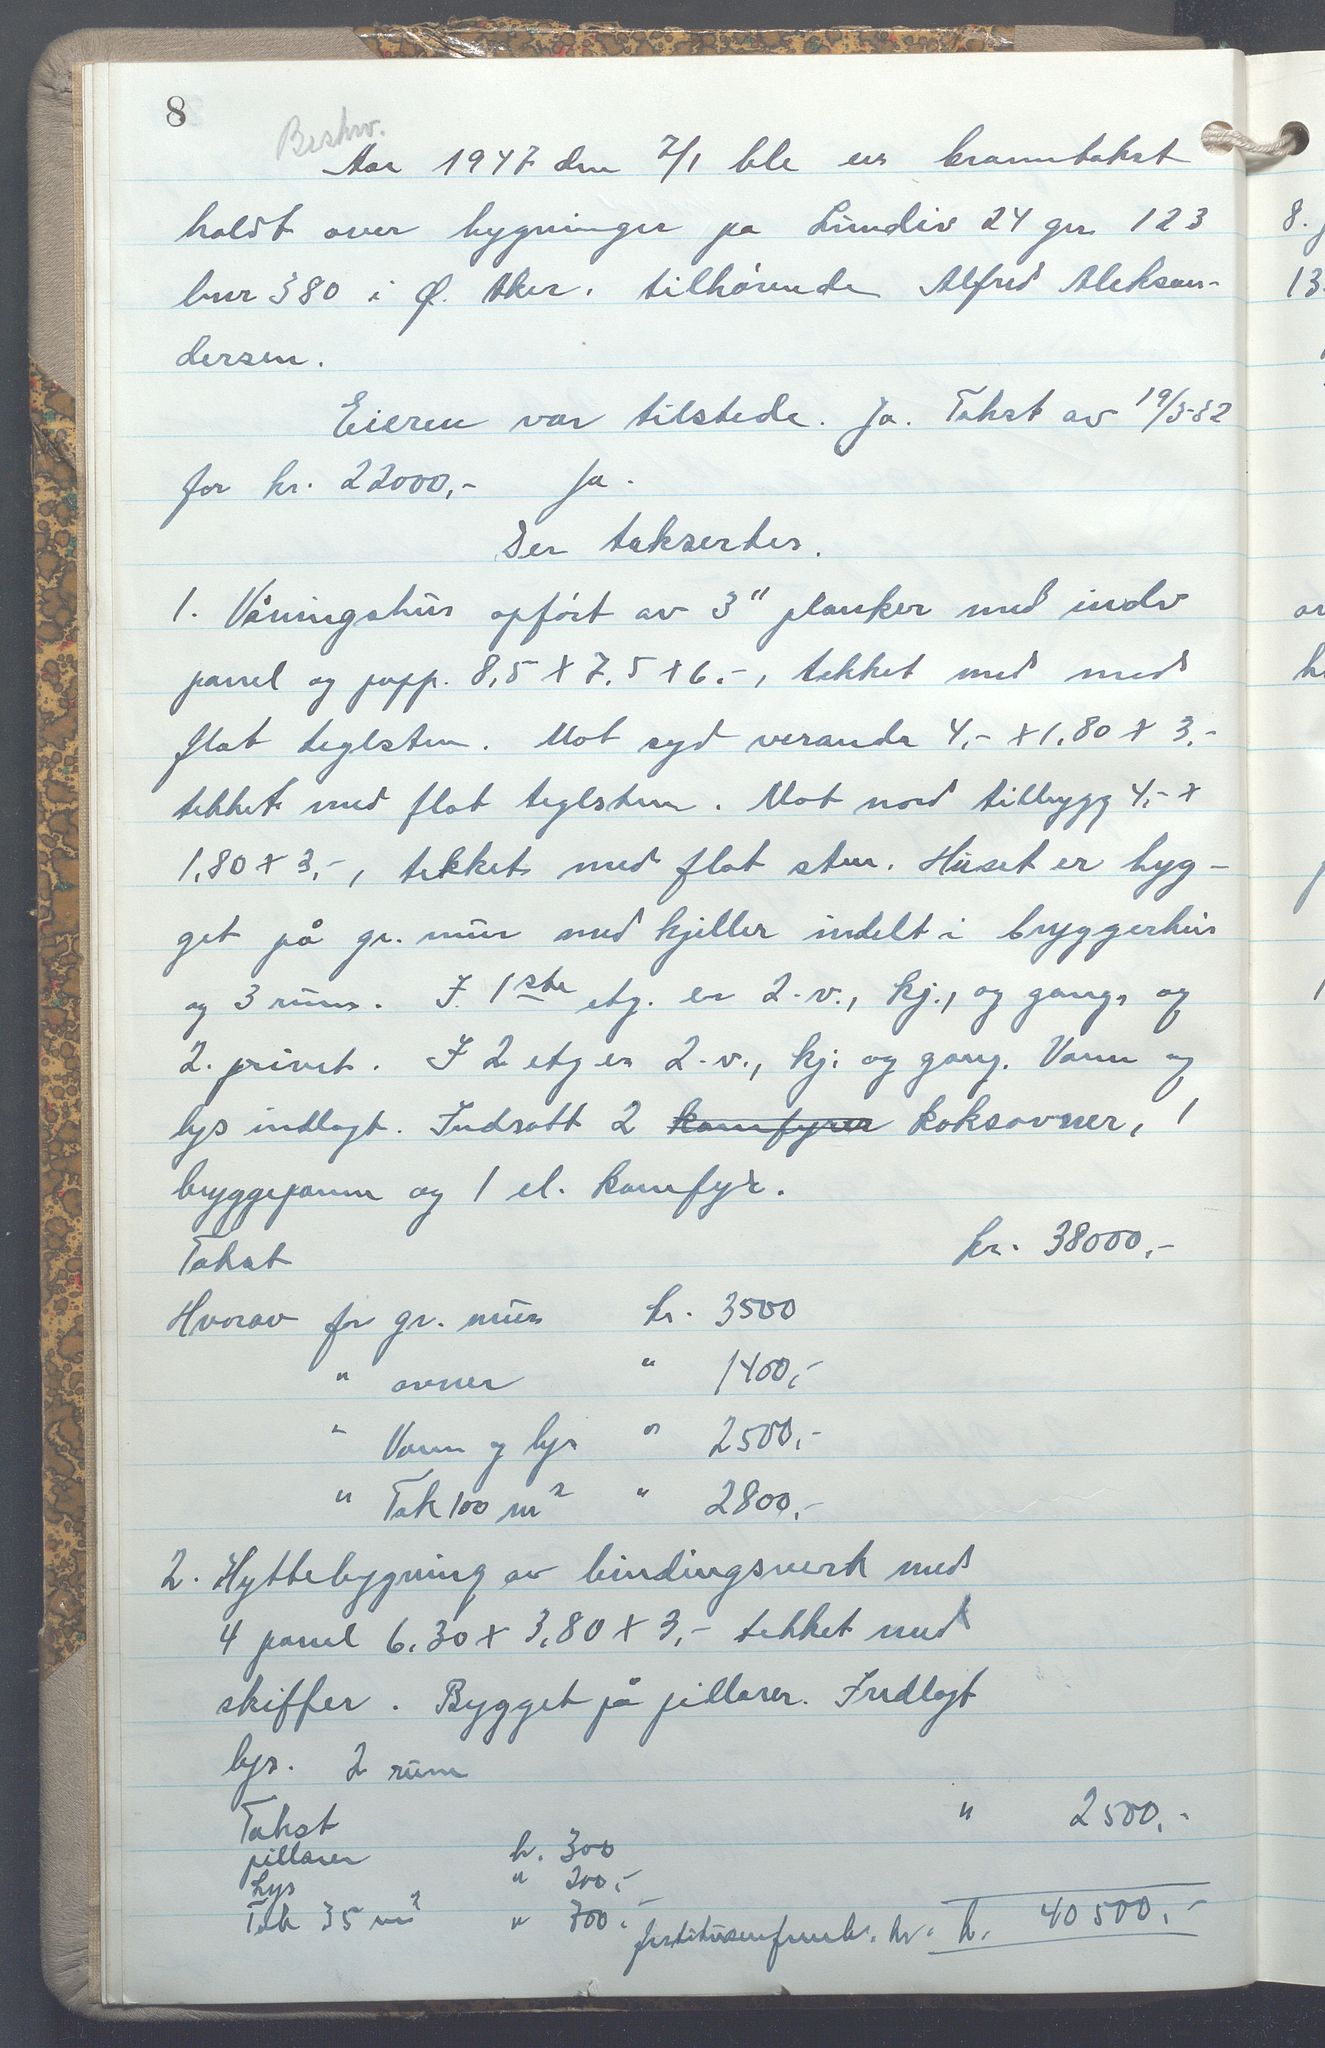 8
Beskriv.
Aar 1947 den 7/1 ble en branntakst
holdt over bygninger pa Lundiv 24 gnr 123
bnr 380 i Ø. Aker. tilhørende Alfred Aleksan-
dersen.
Eieren var tilstede. Ja. Takst av 19/5-32
for kr. 22000,- Ja.
Der takserter.
1. Våningshus opført av 3" planker med indv
panel og papp. 8,5 x 7,5 x 6,-, tekket med med
flat teglsten. Mot syd veranda 4,- x 1,80 x 3,-
tekket med flat teglsten. Mot nord tilbygg 4,- x
1,80 x 3,-, tekket med flat sten. Huset er byg-
get på gr. mur med kjeller indelt i bryggerhus
og 3 rum. I 1ste etg. er 2. v., kj., og gang, og
2. privet. I 2 etg er 2. v., kj. og gang. Vann og
lys indlagt. Indsatt 2 komfyrer koksovner, 1
bryggepanne og 1 el. komfyr.
Takst kr. 38000,-
Hvorav for gr. mur kr. 3500
" ovner " 1400,-
" Vann og lys " 2500,-
" Tak 100 m2 " 2800,-
2. Hyttebygning av bindingsverk med
4 panel 6,30 x 3,80 x 3,- tekket med
skiffer. Bygget på pillarer. Indlagt
lys. 2 rum
Takst " 2500,-
pillarer kr. 300
Lys " 200,-
Tak 35 m2 " 700,-
kr. 40500,-